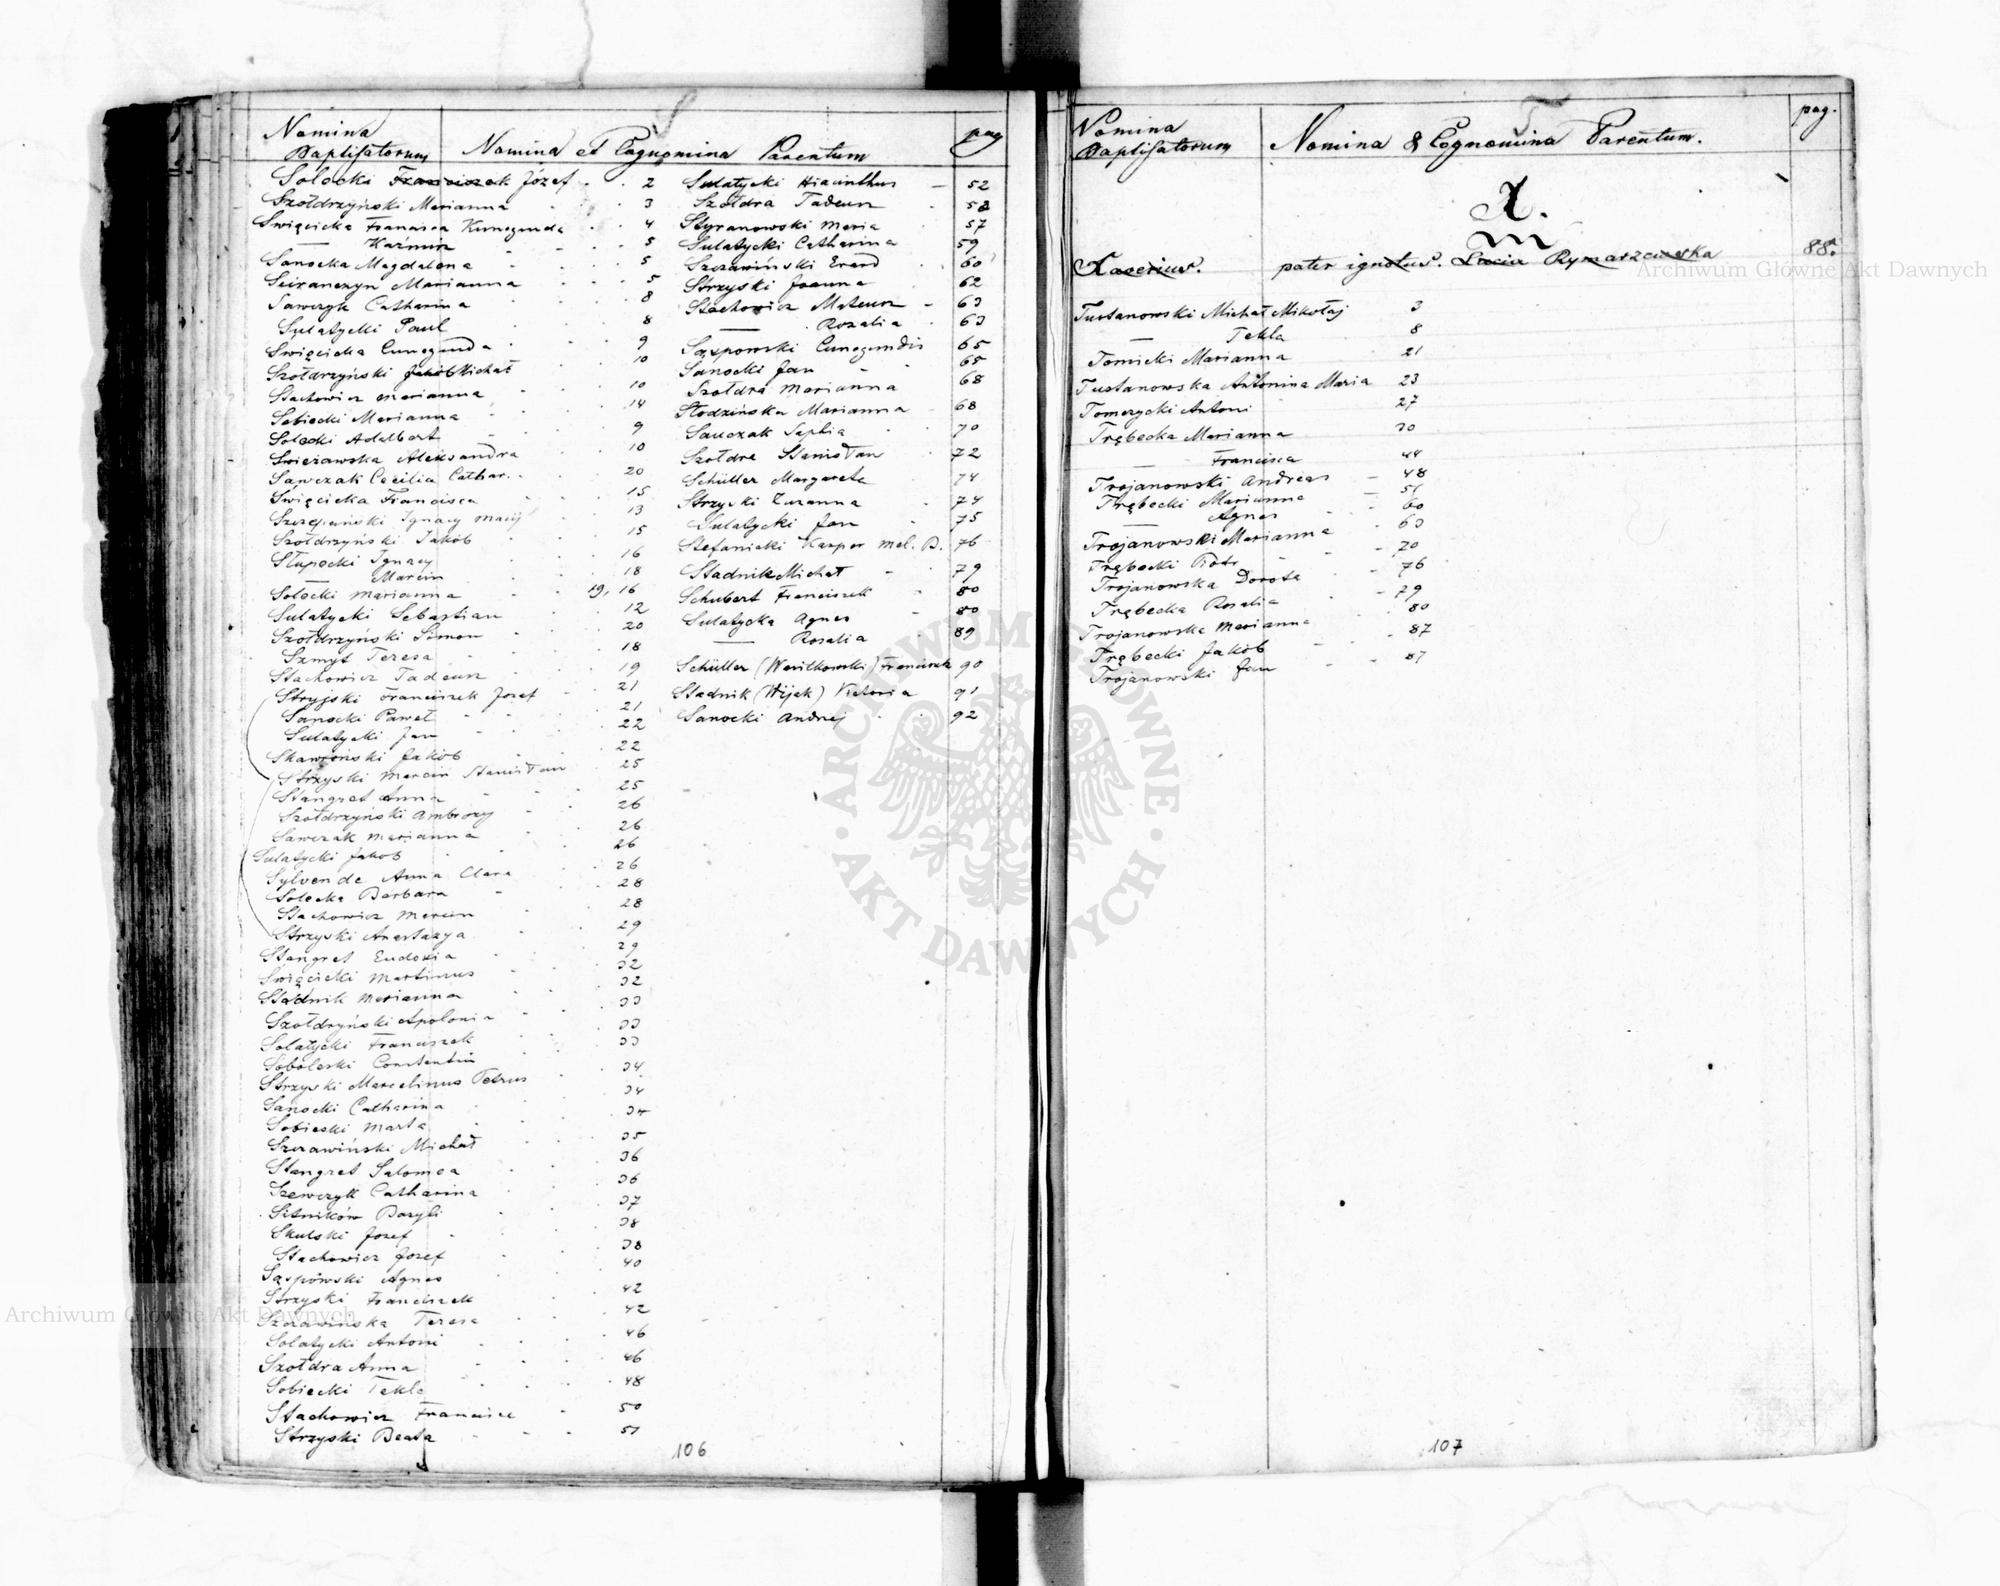 S
Nomina
Baptisatorum
Nomina et Cognomina Parentum
pag
Solecki Franciszek Józef 2
Szołdrzyński Marianna 3
Swięcicka Francisca Kunegunda 4
— Kaźmirz 5
Sanocka Magdalena 5
Marianna 5
Sawczyk Catharina 8
Sulatycki Paul 8
Swięcicka Cunegunda 9
Szołdrzyński Jakób Michał 10
Stachowicz Marianna 10
Sobiecki Marianna 14
Solecki Adalbert 9
Swieżawska Aleksandra 10
Sawczak Cecilia Cathar. 20
Swięcicka Francisca 15
Szczepański Ignacy Macij 13
Szołdrzyński Jakób 15
Słupecki Ignacy 16
— Marcin 18
Solecki Marianna 19, 16
Sulatycki Sebastian 12
Szołdrzyński Simon 20
Szmyt Teresa 18
Stachowicz Tadeusz 19
Stryjski Franciszek Jozef 21
Sanocki Paweł 21
Sulatycki Jan 22
Skawroński Jakób 22
Strzyski Marcin Stanisław 25
Stangret Anna 25
Szołdrzyński Ambrozy 26
Sawczak Marianna 26
Sulatycki Jakob 26
Sylvende Anna Clara 26
Solecka Barbara 28
Stachowicz Marcin 28
Strzyski Anastazya 29
Stangret Eudoxia 29
Święcicki Martinus 32
Stadnik Marianna 32
Szołdryński Apolonia 33
Solatycki Franciszek 33
Soboleski Constantin 33
Strzyski Marcelinus Petrus 34
Sanocki Catharina 34
Sobieski Marta 34
Szczawiński Michał 35
Stangret Salomea 36
Szewczyk Catharina 36
Sitników Bazyli 37
Skulski Jozef 38
Stachowicz Jozef 38
Sąspówski Agnes 40
Strzyski Franciszek 42
Szczawinska Teresa 42
Solatycki Antoni 46
Szołdra Anna 46
Sobiecki Tekla 48
Stachowicz Francisca 50
Strzyski Beata 51
Sulatycki Hiacinthus 52
Szołdra Tadeusz 52
Styranowski Maria 57
Sulatycki Catharina 59
Szczawiński Erard 60
Strzyski Joanna 62
Stachowicz Mateusz 63
— Rozalia 63
Sąspowski Cunegundis 65
Sanocki Jan 65
Szołdra Marianna 68
Słodzińska Marianna 68
Sauczak Sophia 70
Szołdra Stanisław 72
Schüller Margareta 74
Strzyski Zuzanna 74
Sulatycki Jan 75
Stefanicki Kasper Mel. B. 76
Stadnik Michał 79
Schubert Franciszek 80
Sulatycka Agnes 80
— Rosalia 89
Schüller (Wasilkowski) Franciszek 90
Stadnik (Wijak) Victoria 91
Sanocki Andrej 92
106
T
Nomina
Baptisatorum
Nomina & Cognomina Parentum.
pag.
X.
Xaverius. pater ignotus. Lucia Rymarzewska 88.
Tustanowski Michał Mikołaj 3
— Tekla 8
Tomicki Marianna 21
Tustanowska Antonina Maria 23
Tomczycki Antoni 27
Trębecka Marianna 30
— Francisca 44
Trojanowski Andreas 48
Trębecki Marianna 51
— Agnes 60
Trojanowski Marianna 63
Trębecki Piotr 70
Trojanowska Dorota 76
Trębecka Rosalia 79
Trojanowska Marianna 80
Trębecki Jakób 87
Trojanowski Jan 87
107
Archiwum Główne Akt Dawnych
Archiwum Główne Akt Dawnych
ARCHIWUM GŁÓWNE AKT DAWNYCH